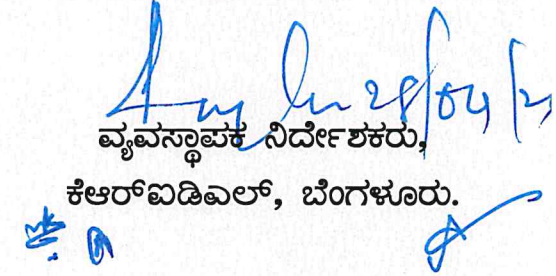 28/04/21
ವ್ಯವಸ್ಥಾಪಕ ನಿರ್ದೇಶಕರು,
ಕೆಆರ್‌ಐಡಿಎಲ್, ಬೆಂಗಳೂರು.